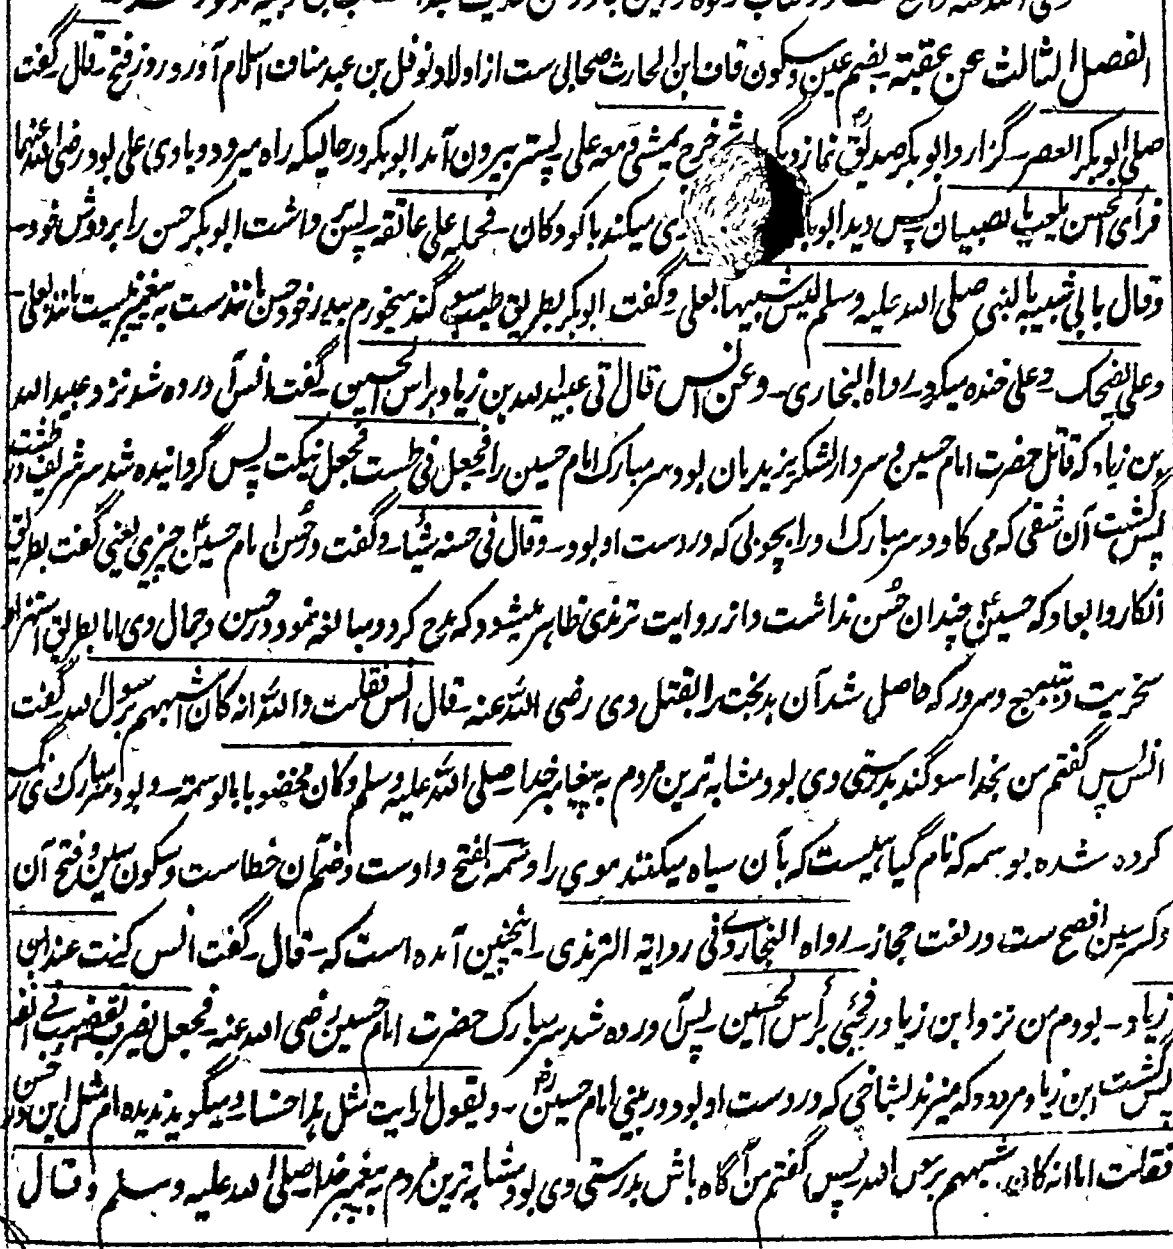 الفصل الثالث عن عقبة بضم عین و سکون قاف ابن الحارث صحابی ست از اولاد نوفل بن عبد مناف اسلام آورد روز فتح قال گفت
صلی ابو بکر العصر گزارد ابو بکر صدیق نماز دیگر خرج یمشی و معه علی پستر بیرون آمد ابو بکر در حالیکه راه میرود و با وی علی بود رضی الله عنهما
فرأی الحسن یلعب بالصبیان پس دید ابو میکند با کودکان فحمله علی عاتقه پس برداشت ابو بکر حسن را بر دوش خود
وقال بابی شبیه بالنبی صلی الله علیه وسلم لیس شبیها بعلی و گفت ابو بکر بطریق طیب سوگند میخورم بپدر خود حسن مانندست به پیغمبر نیست مانند بعلی
وعلی یضحک و علی خنده میکرد رواه البخاری وعن انس قال اتی عبید الله بن زیاد براس الحسین گفت انس آورده شد نزد عبید الله
بن زیاد که قاتل حضرت امام حسین و سردار لشکر یزیدیان بود سر مبارک امام حسین را فجعل فی طست فجعل ینکت پس گردانیده شد سر شریف در طشت
پس گشت آن شقی که می کاود سر مبارک او را بچوبی که در دست او بود وقال فی حسنه شیئا و گفت در حسن امام حسین چیزی یعنی گفت بطریق
انکار و ابعاد که حسین چندان حسن نداشت و از روایت ترمذی ظاهر میشود که مدح کرد و مبالغه نمود در حسن و جمال وی اما بطریق استهزا و
سخریت و تبجح و سرور که حاصل شد آن بدبخت را بقتل وی رضی الله عنه قال انس فقلت والله انه کان اشبههم برسول الله گفت
انس پس گفتم من بخدا سوگند بدرستی وی بود مشابه ترین مردم به پیغامبر خدا صلی الله علیه وسلم وکان مخضوبا بالوسمة و بود سر مبارک وی رنگ
کرده شده بوسمه که نام گیاهیست که بآن سیاه میکنند موی را وسمه بفتح واوست و ضم آن خطاست و سکون سین و فتح آن
و کسر سین افصح ست در لغت حجاز رواه البخاری وفی روایة الترمذی اینچنین آمده است که قال گفت انس کنت عند ابن
زیاد بودم من نزد ابن زیاد فجیٔ برأس الحسین پس آورده شد سر مبارک حضرت امام حسین رضی الله عنه فجعل یضرب بقضیب فی انفه
پس گشت ابن زیاد مردود که میزند بشاخی که در دست او بود در بینی امام حسین ویقول ما رایت مثل هذا حسنا و میگوید ندیده ام مثل این در حسن
فقلت اما انه کان اشبههم برسول الله پس گفتم من آگاه باش بدرستی وی بود مشابه ترین مردم به پیغمبر خدا صلی الله علیه وسلم وقال